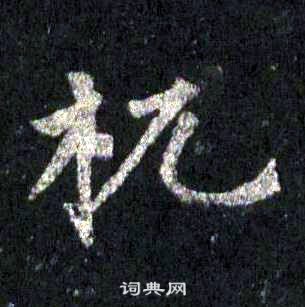 机
词典网